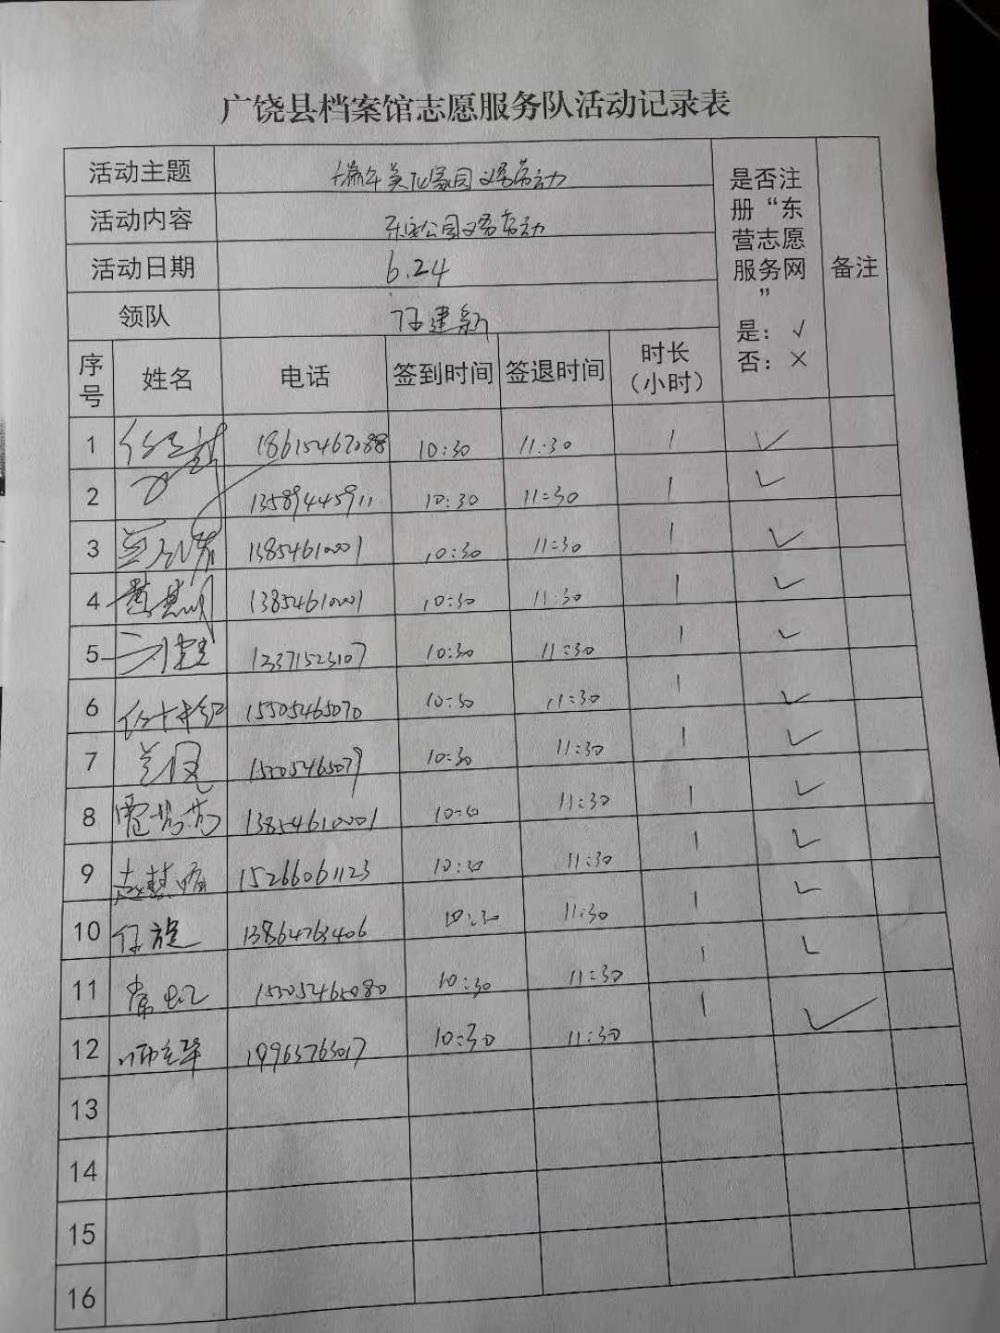 广饶县档案馆志愿服务队活动记录表
活动主题 端午美化家园义务劳动
活动内容 乐安公园义务劳动
活动日期 6.24
领队 任建新
是否注册“东营志愿服务网” 是：√ 否：×
备注
序号 姓名 电话 签到时间 签退时间 时长（小时）
1 18615462088 10:30 11:30 1 ✓
2 13589445911 10:30 11:30 1 ✓
3 13854610001 10:30 11:30 1 ✓
4 13854610001 10:30 11:30 1 ✓
5 10:30 11:30 1 ✓
6 15505465070 10:30 11:30 1 ✓
7 兰凤 10:30 11:30 1 ✓
8 13854610001 11:30 1 ✓
9 赵慧 15266061123 10:30 11:30 1 ✓
10 任旋 13864763406 10:30 11:30 1 ✓
11 常虹 15505465080 10:30 11:30 1 ✓
12 19963763017 10:30 11:30 1 ✓
13
14
15
16